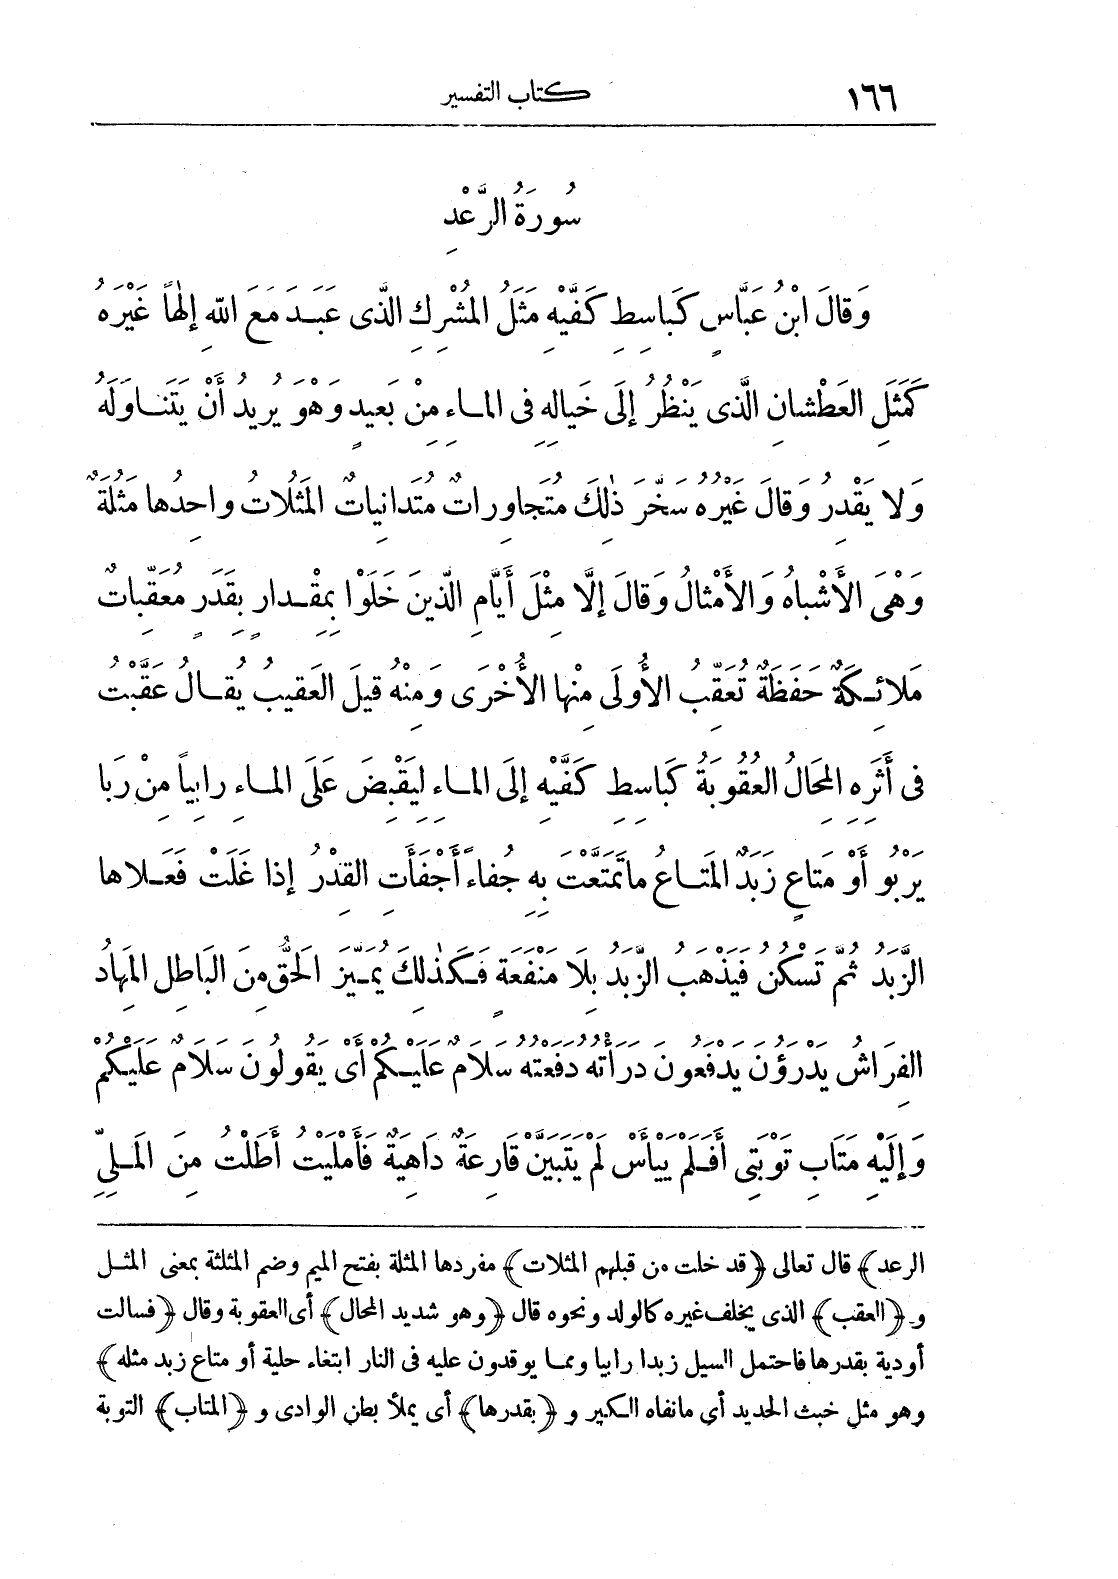 ١٦٦ كتاب التفسير
سُورَةُ الرَّعْدِ
وَقالَ ابْنُ عَبَّاسٍ كَباسِطِ كَفَّيْهِ مَثَلُ المُشْرِكِ الَّذى عَبَدَ مَعَ اللّهِ إِلٰهاً غَيْرَهُ
كَمَثَلِ العَطْشانِ الَّذى يَنْظُرُ إلَى خَيالِهِ فِى الماءِ مِنْ بَعيدٍ وَهْوَ يُرِيدُ أَنْ يَتَناوَلَهُ
وَلا يَقْدِرُ وَقالَ غَيْرُهُ سَخَّرَ ذٰلِكَ مُتَجاوِراتٌ مُتَدانِياتٌ المَثُلاتُ واحِدُها مَثُلَةٌ
وَهْىَ الأَشْباهُ وَالأَمْثالُ وَقالَ إلَّا مِثْلَ أَيَّامِ الَّذينَ خَلَوْا بِمِقْدارٍ بِقَدَرٍ مُعَقِّباتٌ
مَلائِكَةٌ حَفَظَةٌ تُعَقِّبُ الأُولَى مِنْها الأُخْرَى وَمِنْهُ قيلَ العَقيبُ يُقالُ عَقَّبْتُ
فى أَثَرِهِ المِحَالُ العُقُوبَةُ كَباسِطِ كَفَّيْهِ إلَى الماءِ لِيَقْبِضَ عَلَى الماءِ رابِياً مِنْ رَبا
يَرْبُو أَوْ مَتاعٍ زَبَدٌ المَتاعُ ماتَمَتَّعْتَ بِهِ جُفاءً أَجْفَأَتِ القِدْرُ إذا غَلَتْ فَعَلاها
الزَّبَدُ ثُمَّ تَسْكُنُ فَيَذْهَبُ الزَّبَدُ بِلَا مَنْفَعَةٍ فَكَذٰلِكَ يُمَيِّزُ الحَقَّ مِنَ البَاطِلِ المِهادُ
الفِرَاشُ يَدْرَؤُنَ يَدْفَعُونَ دَرَأْتُهُ دَفَعْتُهُ سَلَامٌ عَلَيْكُمْ أَىْ يَقُولُونَ سَلَامٌ عَلَيْكُمْ
وَإلَيْهِ مَتَابِ تَوْبَتِى أَفَلَمْ يَيْأَسْ لَمْ يَتَبَيَّنْ قَارِعَةٌ دَاهِيَةٌ فَأَمْلَيْتُ أَطَلْتُ مِنَ المَلِىِّ
الرعد﴾ قال تعالى ﴿قد خلت من قبلهم المثلات﴾ مفردها المثلة بفتح الميم وضم المثلثة بمعنى المثل
و ﴿العقب﴾ الذى يخلف غيره كالولد ونحوه قال ﴿وهو شديد المحال﴾ أى العقوبة وقال ﴿فسالت
أودية بقدرها فاحتمل السيل زبدا رابيا ومما يوقدون عليه فى النار ابتغاء حلية أو متاع زبد مثله﴾
وهو مثل خبث الحديد أي مانفاه الكير و ﴿بقدرها﴾ أى يملأ بطن الوادى و ﴿المتاب﴾ التوبة